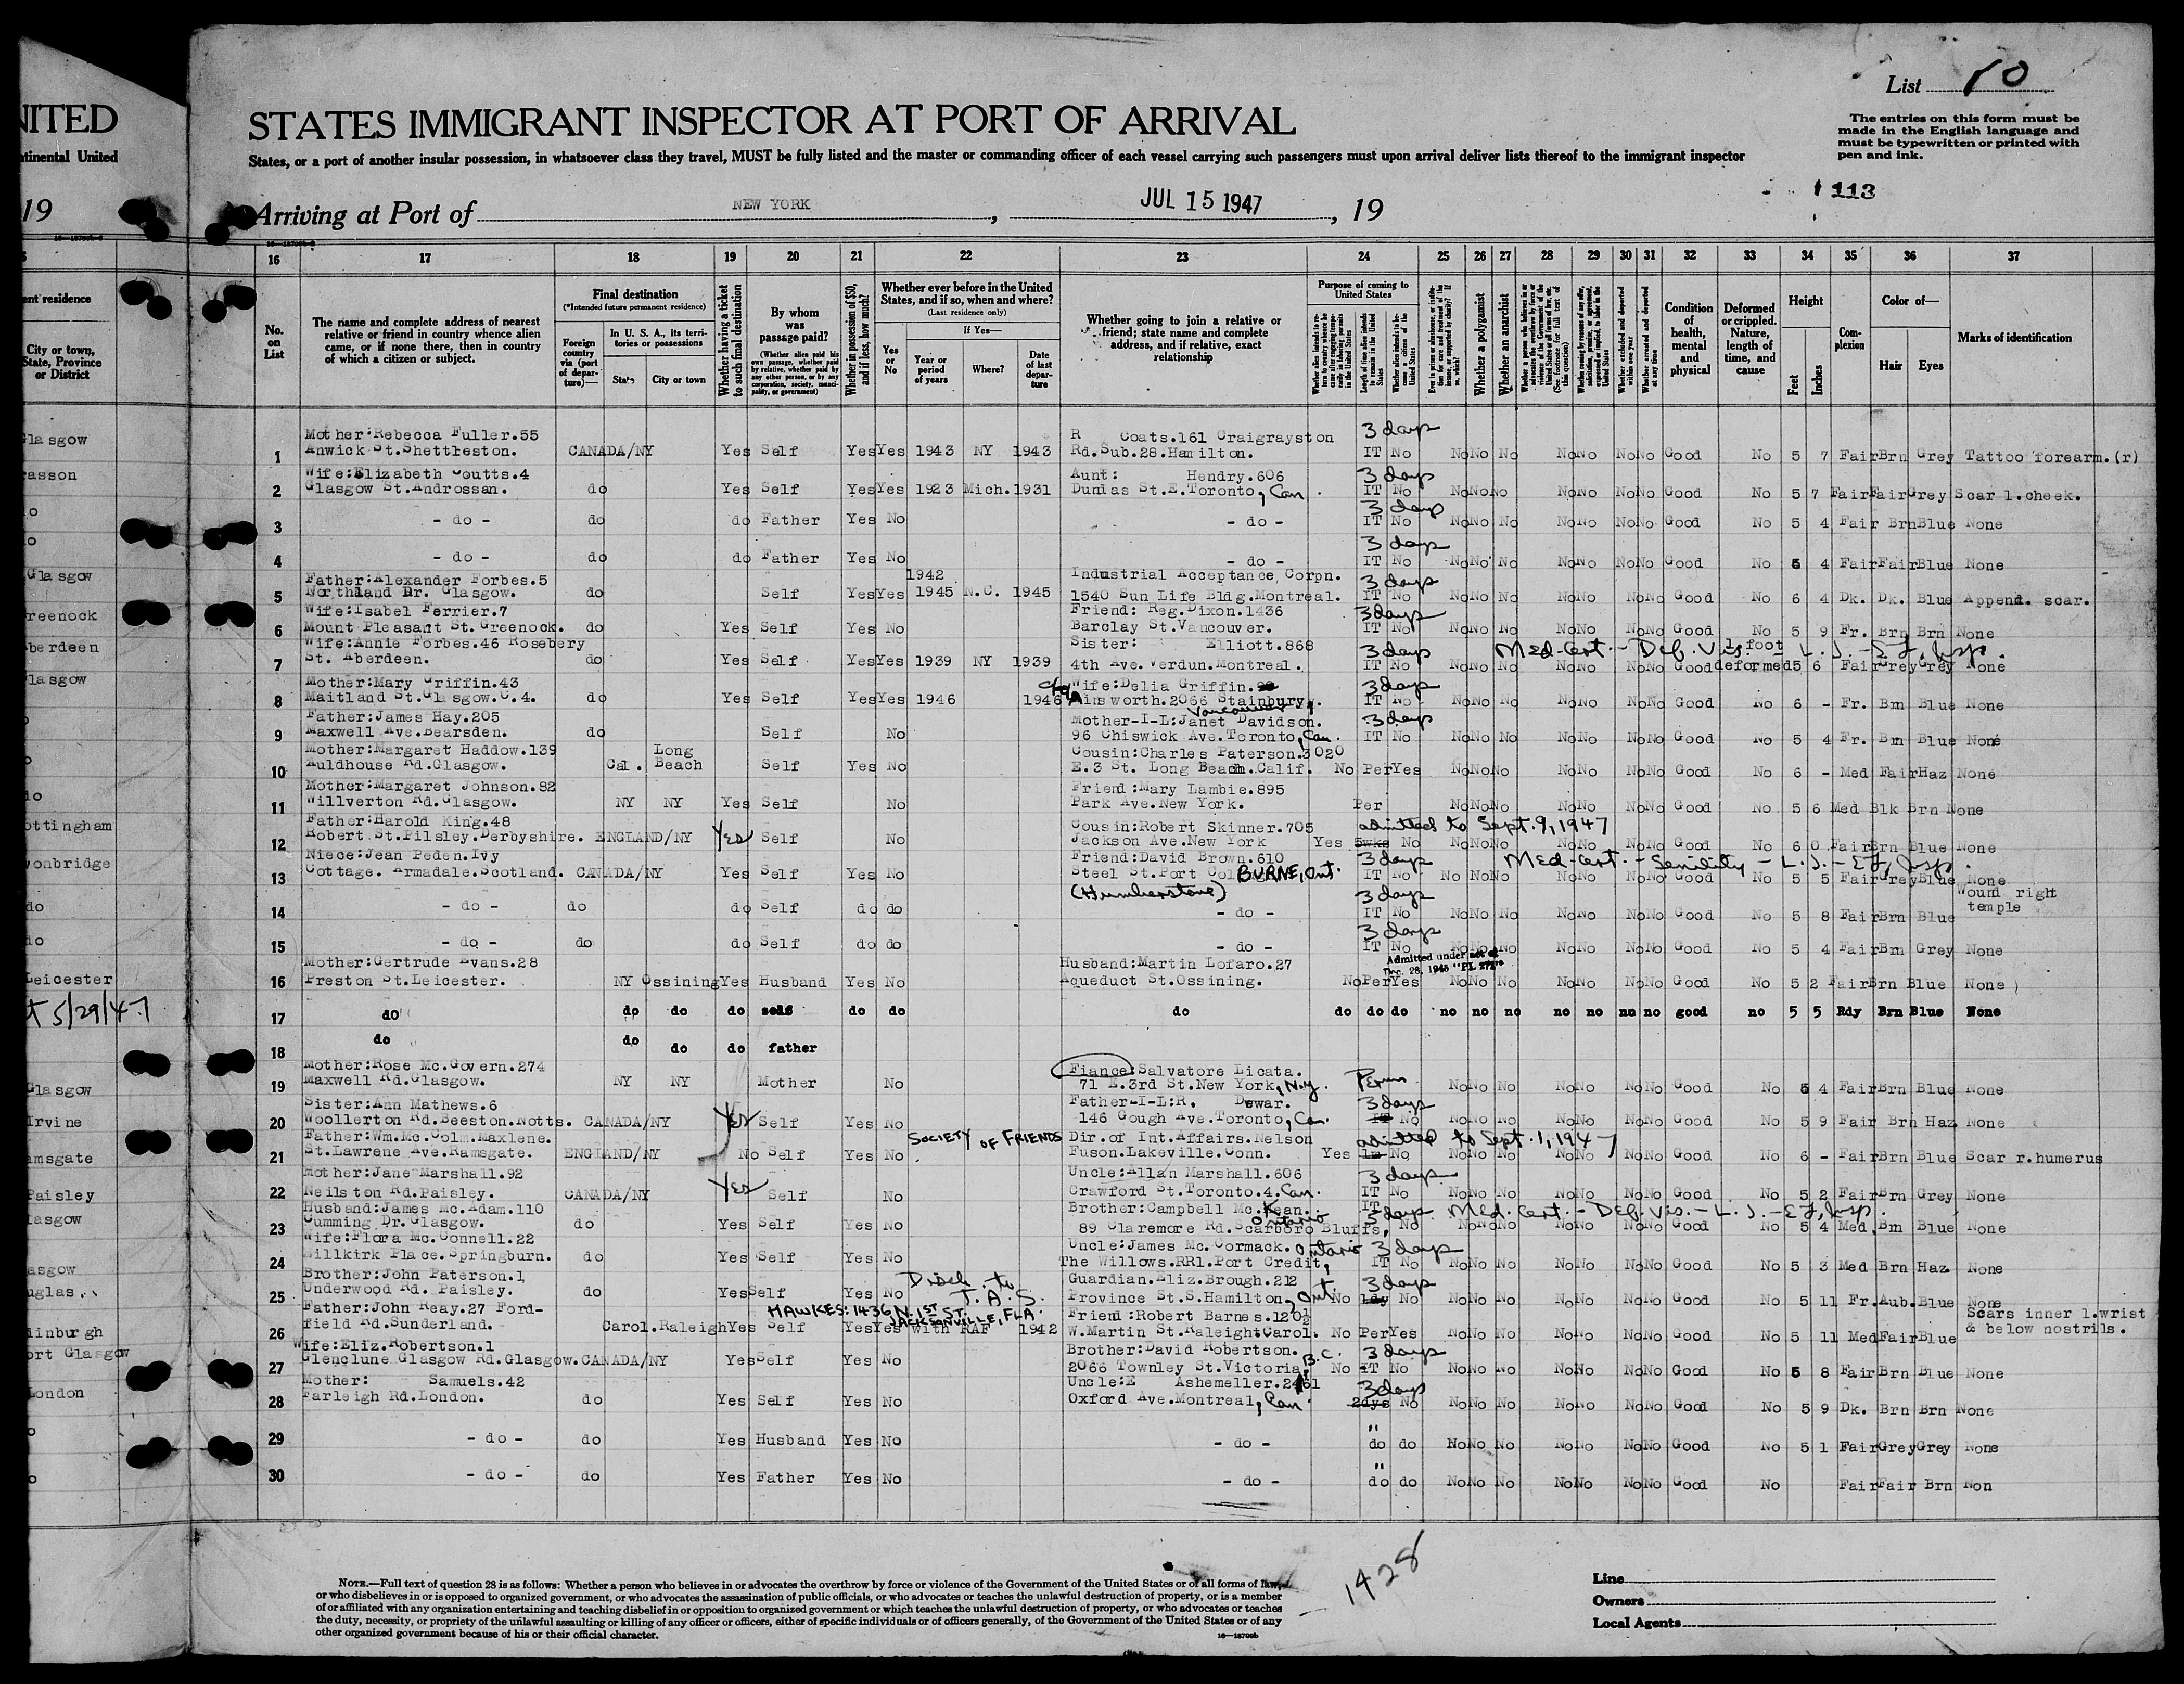 List 10
NITED
STATES IMMIGRANT INSPECTOR AT PORT OF ARRIVAL
The entries on this form must be
made in the English language and
must be typewritten or printed with
pen and ink.
ntinental United
States, or a port of another insular possession, in whatsoever class they travel, MUST be fully listed and the master or commanding officer of each vessel carrying such passengers must upon arrival deliver lists thereof to the immigrant inspector
113
19
Arriving at Port of NEW YORK, JUL 15 1947, 19
16 17 18 19 20 21 22 23 24 25 26 27 28 29 30 31 32 33 34 35 36 37
ent residence
City or town,
State, Province
or District
No.
on
List
The name and complete address of nearest
relative or friend in country whence alien
came, or if none there, then in country
of which a citizen or subject.
Final destination
(*Intended future permanent residence)
Foreign
country
via (port
of depar-
ture)—
In U. S. A., its terri-
tories or possessions
State
City or town
Whether having a ticket
to such final destination
By whom
was
passage paid?
(Whether alien paid his
own passage, whether paid
by relative, whether paid by
any other person, or by any
corporation, society, munici-
pality, or government)
Whether in possession of $50,
and if less, how much?
Whether ever before in the United
States, and if so, when and where?
(Last residence only)
Yes
or
No
If Yes—
Year or
period
of years
Where?
Date
of last
depar-
ture
Whether going to join a relative or
friend; state name and complete
address, and if relative, exact
relationship
Purpose of coming to
United States
Whether a polygamist
Whether an anarchist
Whether excluded and deported
within one year
Whether arrested and deported
at any time
Condition
of
health,
mental
and
physical
Deformed
or crippled.
Nature,
length of
time, and
cause
Height
Feet
Inches
Com-
plexion
Color of—
Hair
Eyes
Marks of identification
Glasgow
Mother:Rebecca Fuller.55 R Coats.161 Craigrayston 3 days
1 Anwick St.Shettleston. CANADA/NY Yes Self Yes Yes 1943 NY 1943 Rd.Sub.28.Hamilton. IT No No No No No No No No Good No 5 7 Fair Brn Grey Tattoo forearm.(r)
rasson
Wife:Elizabeth Coutts.4 Aunt: Hendry.606 3 days
2 Glasgow St.Androssan. do Yes Self Yes Yes 1923 Mich. 1931 Dundas St.E.Toronto, Can. IT No No No No No No No No Good No 5 7 Fair Fair Grey Scar l.cheek.
3 days
3 - do - do do Father Yes No - do - IT No No No No No No No No Good No 5 4 Fair Brn Blue None
3 days
4 - do - do do Father Yes No - do - IT No No No No No No No No Good No 5 4 Fair Fair Blue None
Glasgow
Father:Alexander Forbes.5 1942 Industrial Acceptance Corpn. 3 days
5 Northland Dr. Glasgow. do Self Yes Yes 1945 N.C. 1945 1540 Sun Life Bldg.Montreal. IT No No No No No No No No Good No 6 4 Dk. Dk. Blue Append. scar.
reenock
Wife:Isabel Ferrier.7 Friend: Reg.Dixon.1436 3 days
6 Mount Pleasant St.Greenock. do Yes Self Yes No Barclay St.Vancouver. IT No No No No No No No No Good No 5 9 Fr. Brn Brn None
berdeen
Wife:Annie Forbes.46 Rosebery Sister: Elliott.868 3 days Med. Cert. - Def. Vis. foot L. J. - E J, Insp.
7 St. Aberdeen. do Yes Self Yes Yes 1939 NY 1939 4th Ave.Verdun.Montreal. IT No No No No No No No No Good deformed 5 6 Fair Grey Grey None
lasgow
Mother:Mary Griffin.43 c/o Wife:Delia Griffin. 3 days
8 Maitland St.Glasgow.C.4. do Yes Self Yes Yes 1946 1946 Ainsworth.2066 Stainbury, Vancouver IT No No No No No No No No Good No 6 - Fr. Brn Blue None
Father:James Hay.205 Mother-I-L:Janet Davidson. 3 days
9 Maxwell Ave.Bearsden. do Self No 96 Chiswick Ave.Toronto, Can. IT No No No No No No No No Good No 5 4 Fr. Brn Blue None
Mother:Margaret Haddow.139 Long Cousin:Charles Paterson.3020
10 Auldhouse Rd.Glasgow. Cal. Beach Self Yes No E.3 St. Long Beach.Calif. No Per Yes No No No No No No No Good No 6 - Med Fair Haz None
Mother:Margaret Johnson.82 Friend:Mary Lambie.895
11 Willverton Rd.Glasgow. NY NY Yes Self No Park Ave.New York. Per No No No No No No No Good No 5 6 Med Blk Brn None
ottingham
Father:Harold King.48 Cousin:Robert Skinner.705 admitted to Sept. 9, 1947
12 Robert St.Pilsley.Derbyshire. ENGLAND/NY Yes Self No Jackson Ave.New York Yes 5wks No No No No No No No No Good No 6 0 Fair Brn Blue None
vonbridge
Niece:Jean Peden.Ivy Friend:David Brown.610 3 days Med. Cert. - Senility - L. J. - E J, Insp.
13 Cottage. Armadale.Scotland. CANADA/NY Yes Self Yes No Steel St.Port Col BURNE, Ont. IT No No No No No No No No Good No 5 5 Fair Grey Blue None
(Humberstone) 3 days Wound right
14 - do - do do Self do do - do - IT No No No No No No No No Good No 5 8 Fair Brn Blue temple
3 days
15 - do - do do Self do do - do - IT No No No No No No No No Good No 5 4 Fair Brn Grey None
Leicester
Mother:Gertrude Evans.28 Husband:Martin Lofaro.27 Admitted under act of Dec. 28, 1945 "PL 271"
16 Preston St.Leicester. NY Ossining Yes Husband Yes No Aqueduct St.Ossining. No Per Yes No No No No No No No Good No 5 2 Fair Brn Blue None
5/29/47
17 do do do do self do do do do do do no no no no no no no good no 5 5 Rdy Brn Blue None
18 do do do do father
Glasgow
Mother:Rose Mc.Govern.274 Fiance:Salvatore Licata.
19 Maxwell Rd.Glasgow. NY NY Mother No 71 E.3rd St.New York, N.Y. Perm No No No No No No No Good No 5 4 Fair Brn Blue None
Irvine
Sister:Ann Mathews.6 Father-I-L:R. Dewar. 3 days
20 Woollerton Rd.Beeston.Notts. CANADA/NY Yes Self Yes No 146 Gough Ave.Toronto, Can. IT No No No No No No No No Good No 5 9 Fair Brn Haz None
amsgate
Father:Wm.Mc.Colm.Maxlene. SOCIETY OF FRIENDS Dir.of Int.Affairs.Nelson admitted to Sept. 1, 1947
21 St.Lawrene Ave.Ramsgate. ENGLAND/NY No Self Yes No Fuson.Lakeville.Conn. Yes 1m No No No No No No No No Good No 6 - Fair Brn Blue Scar r.humerus
Paisley
Mother:Jane Marshall.92 Uncle:Allan Marshall.606 3 days
22 Neilston Rd.Paisley. CANADA/NY Yes Self No Crawford St.Toronto.4. Can. IT No No No No No No No No Good No 5 2 Fair Brn Grey None
lasgow
Husband:James Mc.Adam.110 Brother:Campbell Mc.Kean. IT 3 days Med. Cert. - Def. Vis. - L. J. - E J, Insp.
23 Cumming Dr.Glasgow. do Yes Self Yes No 89 Claremore Rd.Scarboro Bluffs, Ontario No No No No No No No No Good No 5 4 Med Brn Blue None
Wife:Flora Mc.Connell.22 Uncle:James Mc.Cormack. Ontario 3 days
24 Hillkirk Place.Springburn. do Yes Self Yes No The Willows.RR1.Port Credit, IT No No No No No No No No Good No 5 3 Med Brn Haz None
asgow
uglas.
Brother:John Paterson.1 Disch. to J. A. S. Guardian.Eliz.Brough.212 3 days
25 Underwood Rd. Paisley. do Yes Self Yes No Province St.S.Hamilton, Ont. No 1dy No No No No No No No No Good No 5 11 Fr. Aub. Blue None
dinburgh
Father:John Reay.27 Ford- HAWKES: 1436 N. 1ST ST. JACKSONVILLE, FLA. Friend:Robert Barnes.120½ Scars inner l.wrist
26 field Rd.Sunderland. Carol. Raleigh Yes Self Yes Yes with RAF 1942 W.Martin St.Raleigh Carol. No Per Yes No No No No No No No Good No 5 11 Med Fair Blue & below nostrils.
ort Glasgow
Wife:Eliz.Robertson.1 Brother:David Robertson. 3 days
27 Glenclune Glasgow Rd.Glasgow. CANADA/NY Yes Self Yes No 2066 Townley St.Victoria, B.C. No IT No No No No No No No No Good No 5 8 Fair Brn Blue None
London
Mother: Samuels.42 Uncle:E Ashemeller.2461 3 days
28 Farleigh Rd.London. do Yes Self Yes No Oxford Ave.Montreal, Can. 2dys No No No No No No No No Good No 5 9 Dk. Brn Brn None
"
29 - do - do Yes Husband Yes No - do - do do No No No No No No No Good No 5 1 Fair Grey Grey None
"
30 - do - do Yes Father Yes No - do - do do No No No No No No No Good No Fair Fair Brn Non
1428
NOTE.—Full text of question 28 is as follows: Whether a person who believes in or advocates the overthrow by force or violence of the Government of the United States or of all forms of law,
or who disbelieves in or is opposed to organized government, or who advocates the assassination of public officials, or who advocates or teaches the unlawful destruction of property, or is a member
of or affiliated with any organization entertaining and teaching disbelief in or opposition to organized government or which teaches the unlawful destruction of property, or who advocates or teaches
the duty, necessity, or propriety of the unlawful assaulting or killing of any officer or officers, either of specific individuals or of officers generally, of the Government of the United States or of any
other organized government because of his or their official character.
16—18700b
Line
Owners
Local Agents